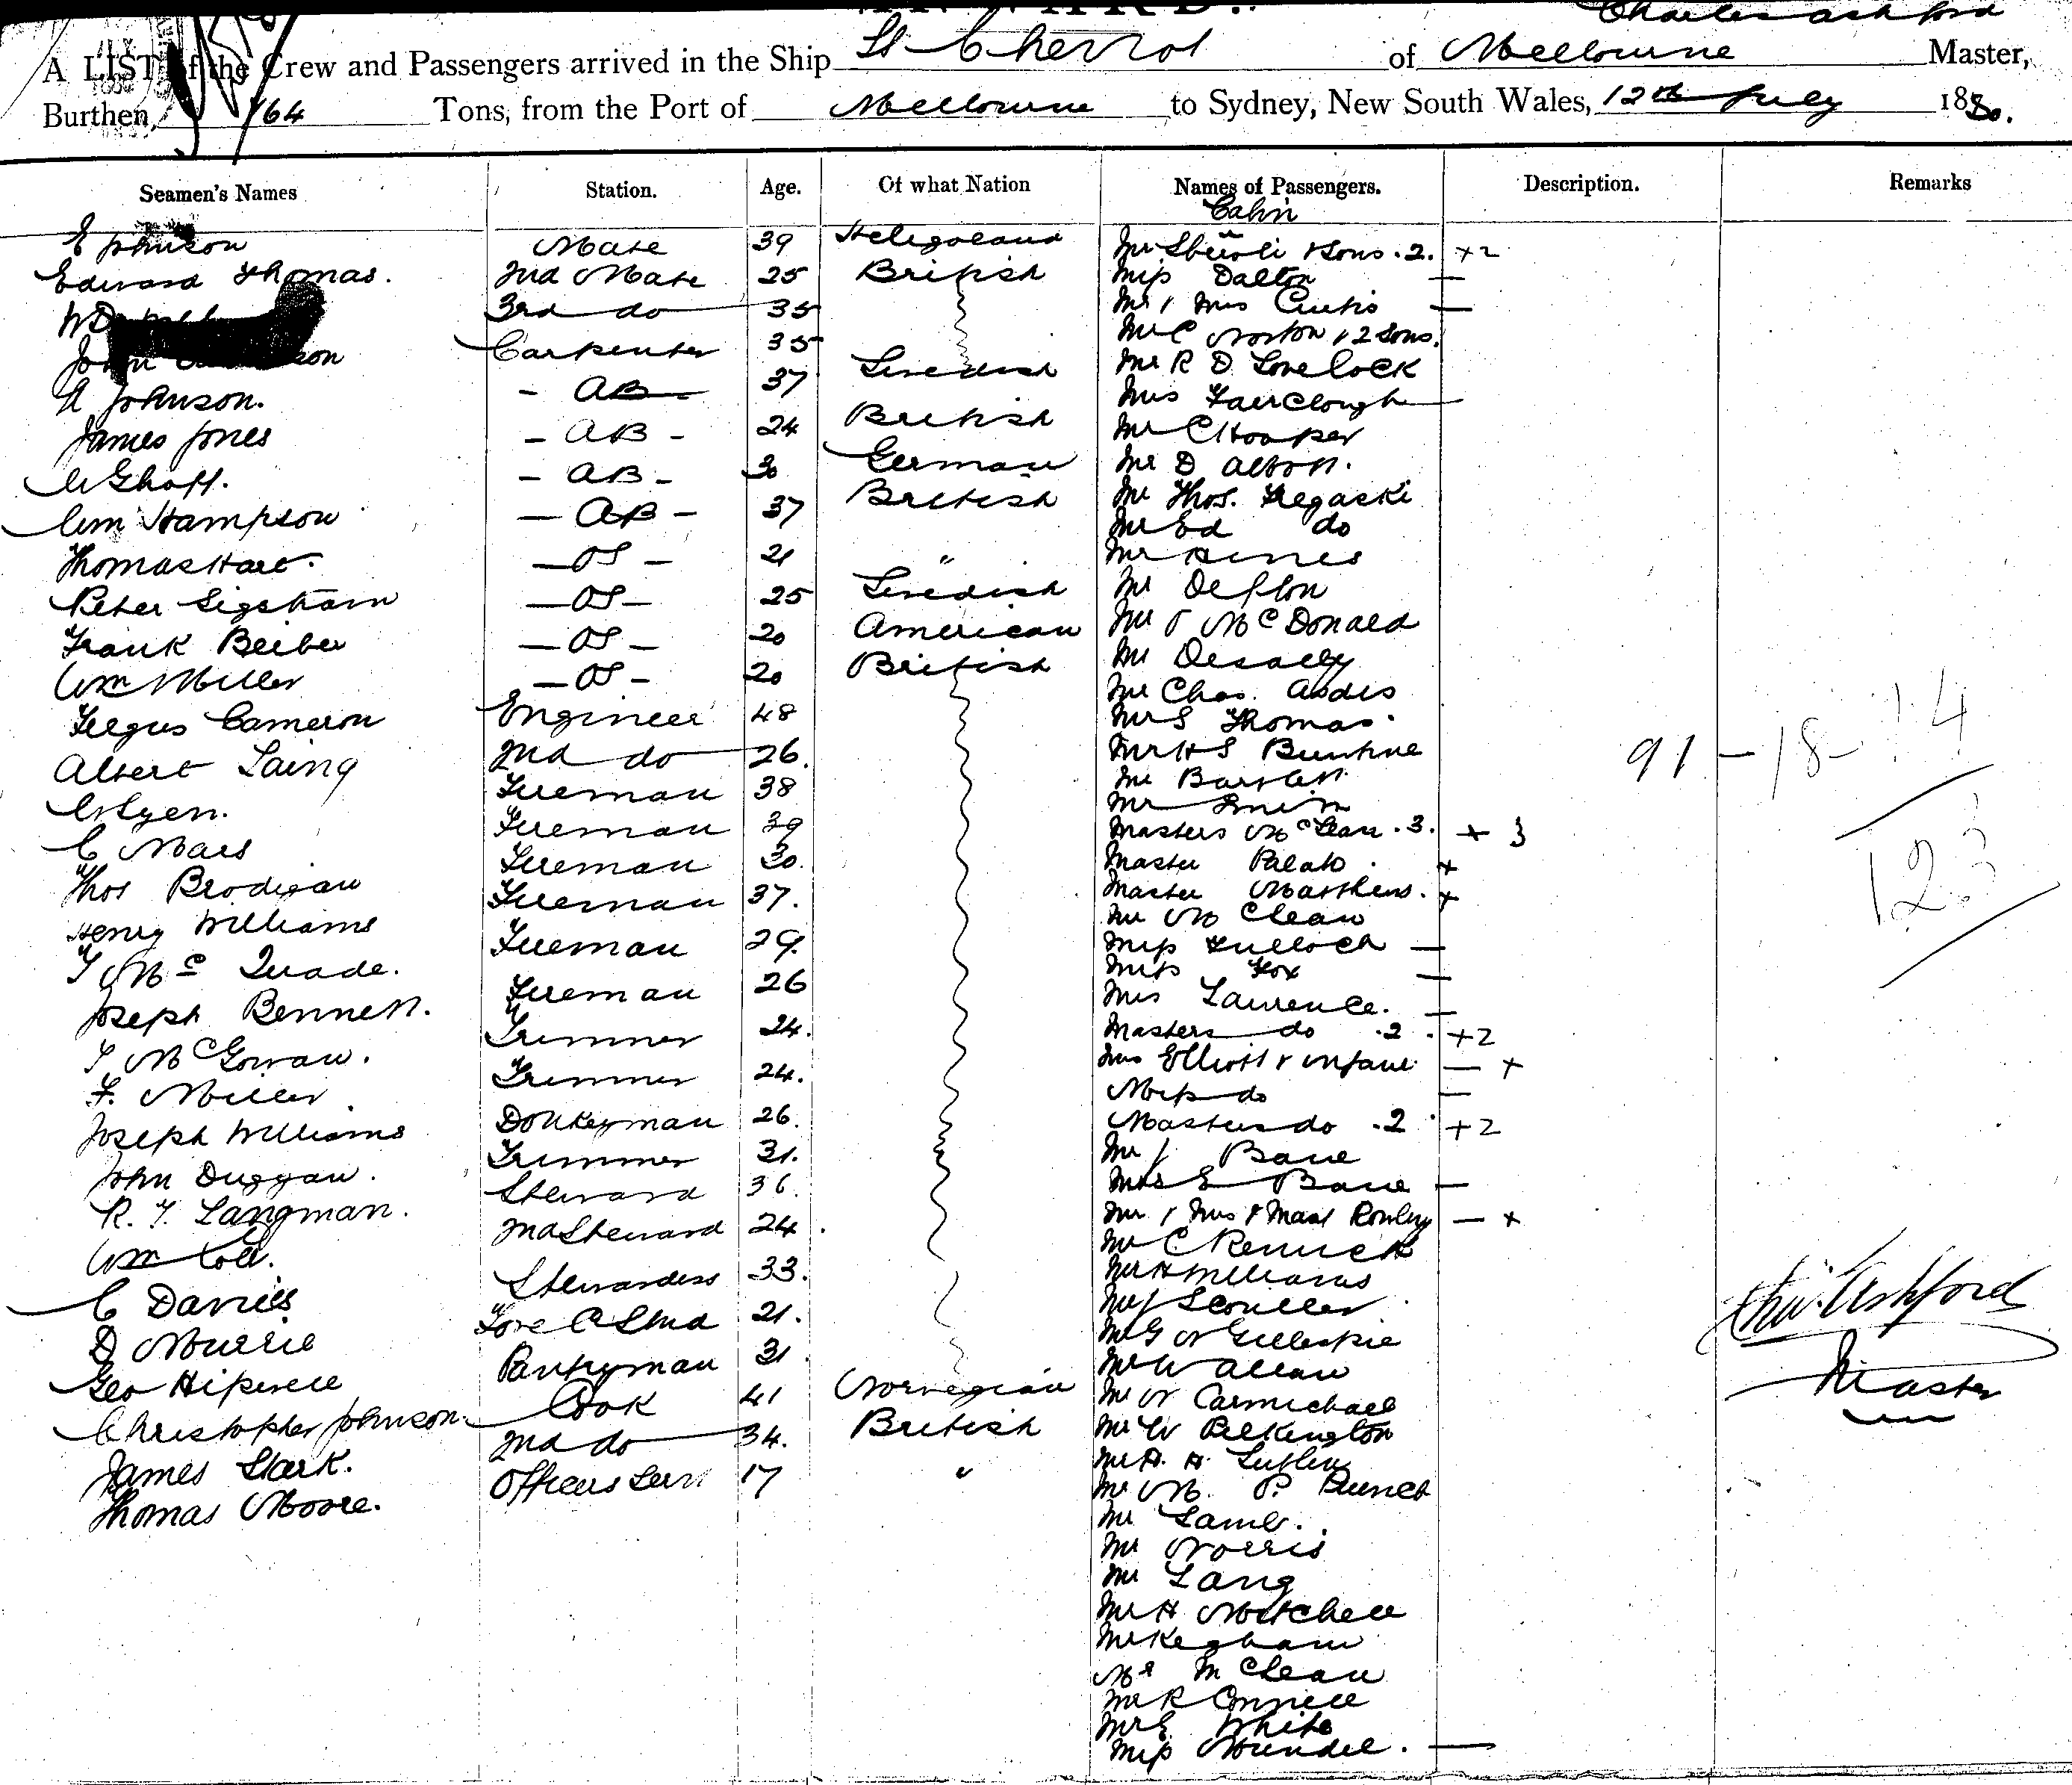 Charles Ashford
A LIST of the Crew and Passengers arrived in the Ship of Melbourne Master,
Burthen, 764 Tons, from the Port of Melbourne to Sydney, New South Wales, 12th July 1880.
Seamen's Names Station. Age. Of what Nation Names of Passengers. Description. Remarks
Cabin
E Johnson Mate 39 Heligoland Mr & Sons . 2. +2
Edward Thomas. 2nd Mate 25 British Miss Dalton —
3rd do 35 Mr & Mrs Curtis —
John Carpenter 35 Mr C Norton & 2 Sons.
A Johnson. - AB - 37 Swedish Mr R D Lovelock
James Jones - AB - 24 British Mrs Fairclough —
- AB - 30 German Mr C Hooper
Wm Hampson - AB - 37 British Mr D Abbott.
Thomas Hart. - OS - 21 " Mr Thos. Tregaski
Peter Sigstrom - OS - 25 Swedish Mr Ed do
Frank Beiber - OS - 20 American Mr Hines
Wm Miller - OS - 20 British Mr Deflon
Fergus Cameron Engineer 48 Mr J McDonald
Albert Laing 2nd do 26. Mr Desally
Fireman 38 Mr Chas.
C Mars Fireman 39 Mr S Thomas.
Thos Brodigan Fireman 30. Mr H S
Henry Williams Fireman 37. Mr Bartlett
T McQuade. Fireman 29. Mr Smith
Joseph Bennett. Fireman 26 Masters McLean . 3. + 3
T McGowan. Trimmer 24. Master +
F. Miller. Trimmer 24. Master Matthews. +
Joseph Williams Donkeyman 26. Mr McLean
John Duggan. Trimmer 31. Miss Tulloch —
R. T. Langman. Steward 36. Miss Fox —
Wm Coll. 2nd Steward 24. Mrs Lawrence. —
C Davies Stewardess 33. Masters do . 2 . +2
D Murrie Fore C Stwd 21. Mrs Elliott & infant — +
Geo Pantryman 31 Miss do —
Christopher Johnson. Cook 41 Norwegian Masters do . 2 . +2
James Stark. 2nd do 34. British Mr J Bane
Thomas Moore. Officers Serv 17 " Mrs E Bane —
Mr & Mrs & Mast Rowley — +
Mr C Renwick
Mr H Williams
Mr J Scouller
Mr G N Gillespie
Mr W Allan
Mr N Carmichael
Mr W Pilkington
Mr H. H.
Mr M. P.
Mr Lamb.
Mr Norris
Mr Lang
Mr H Mitchell
Mr
Mr McLean
Mr R Connell
Mr E White
Miss —
91 - 18 - 14
123
Chas. Ashford
Master